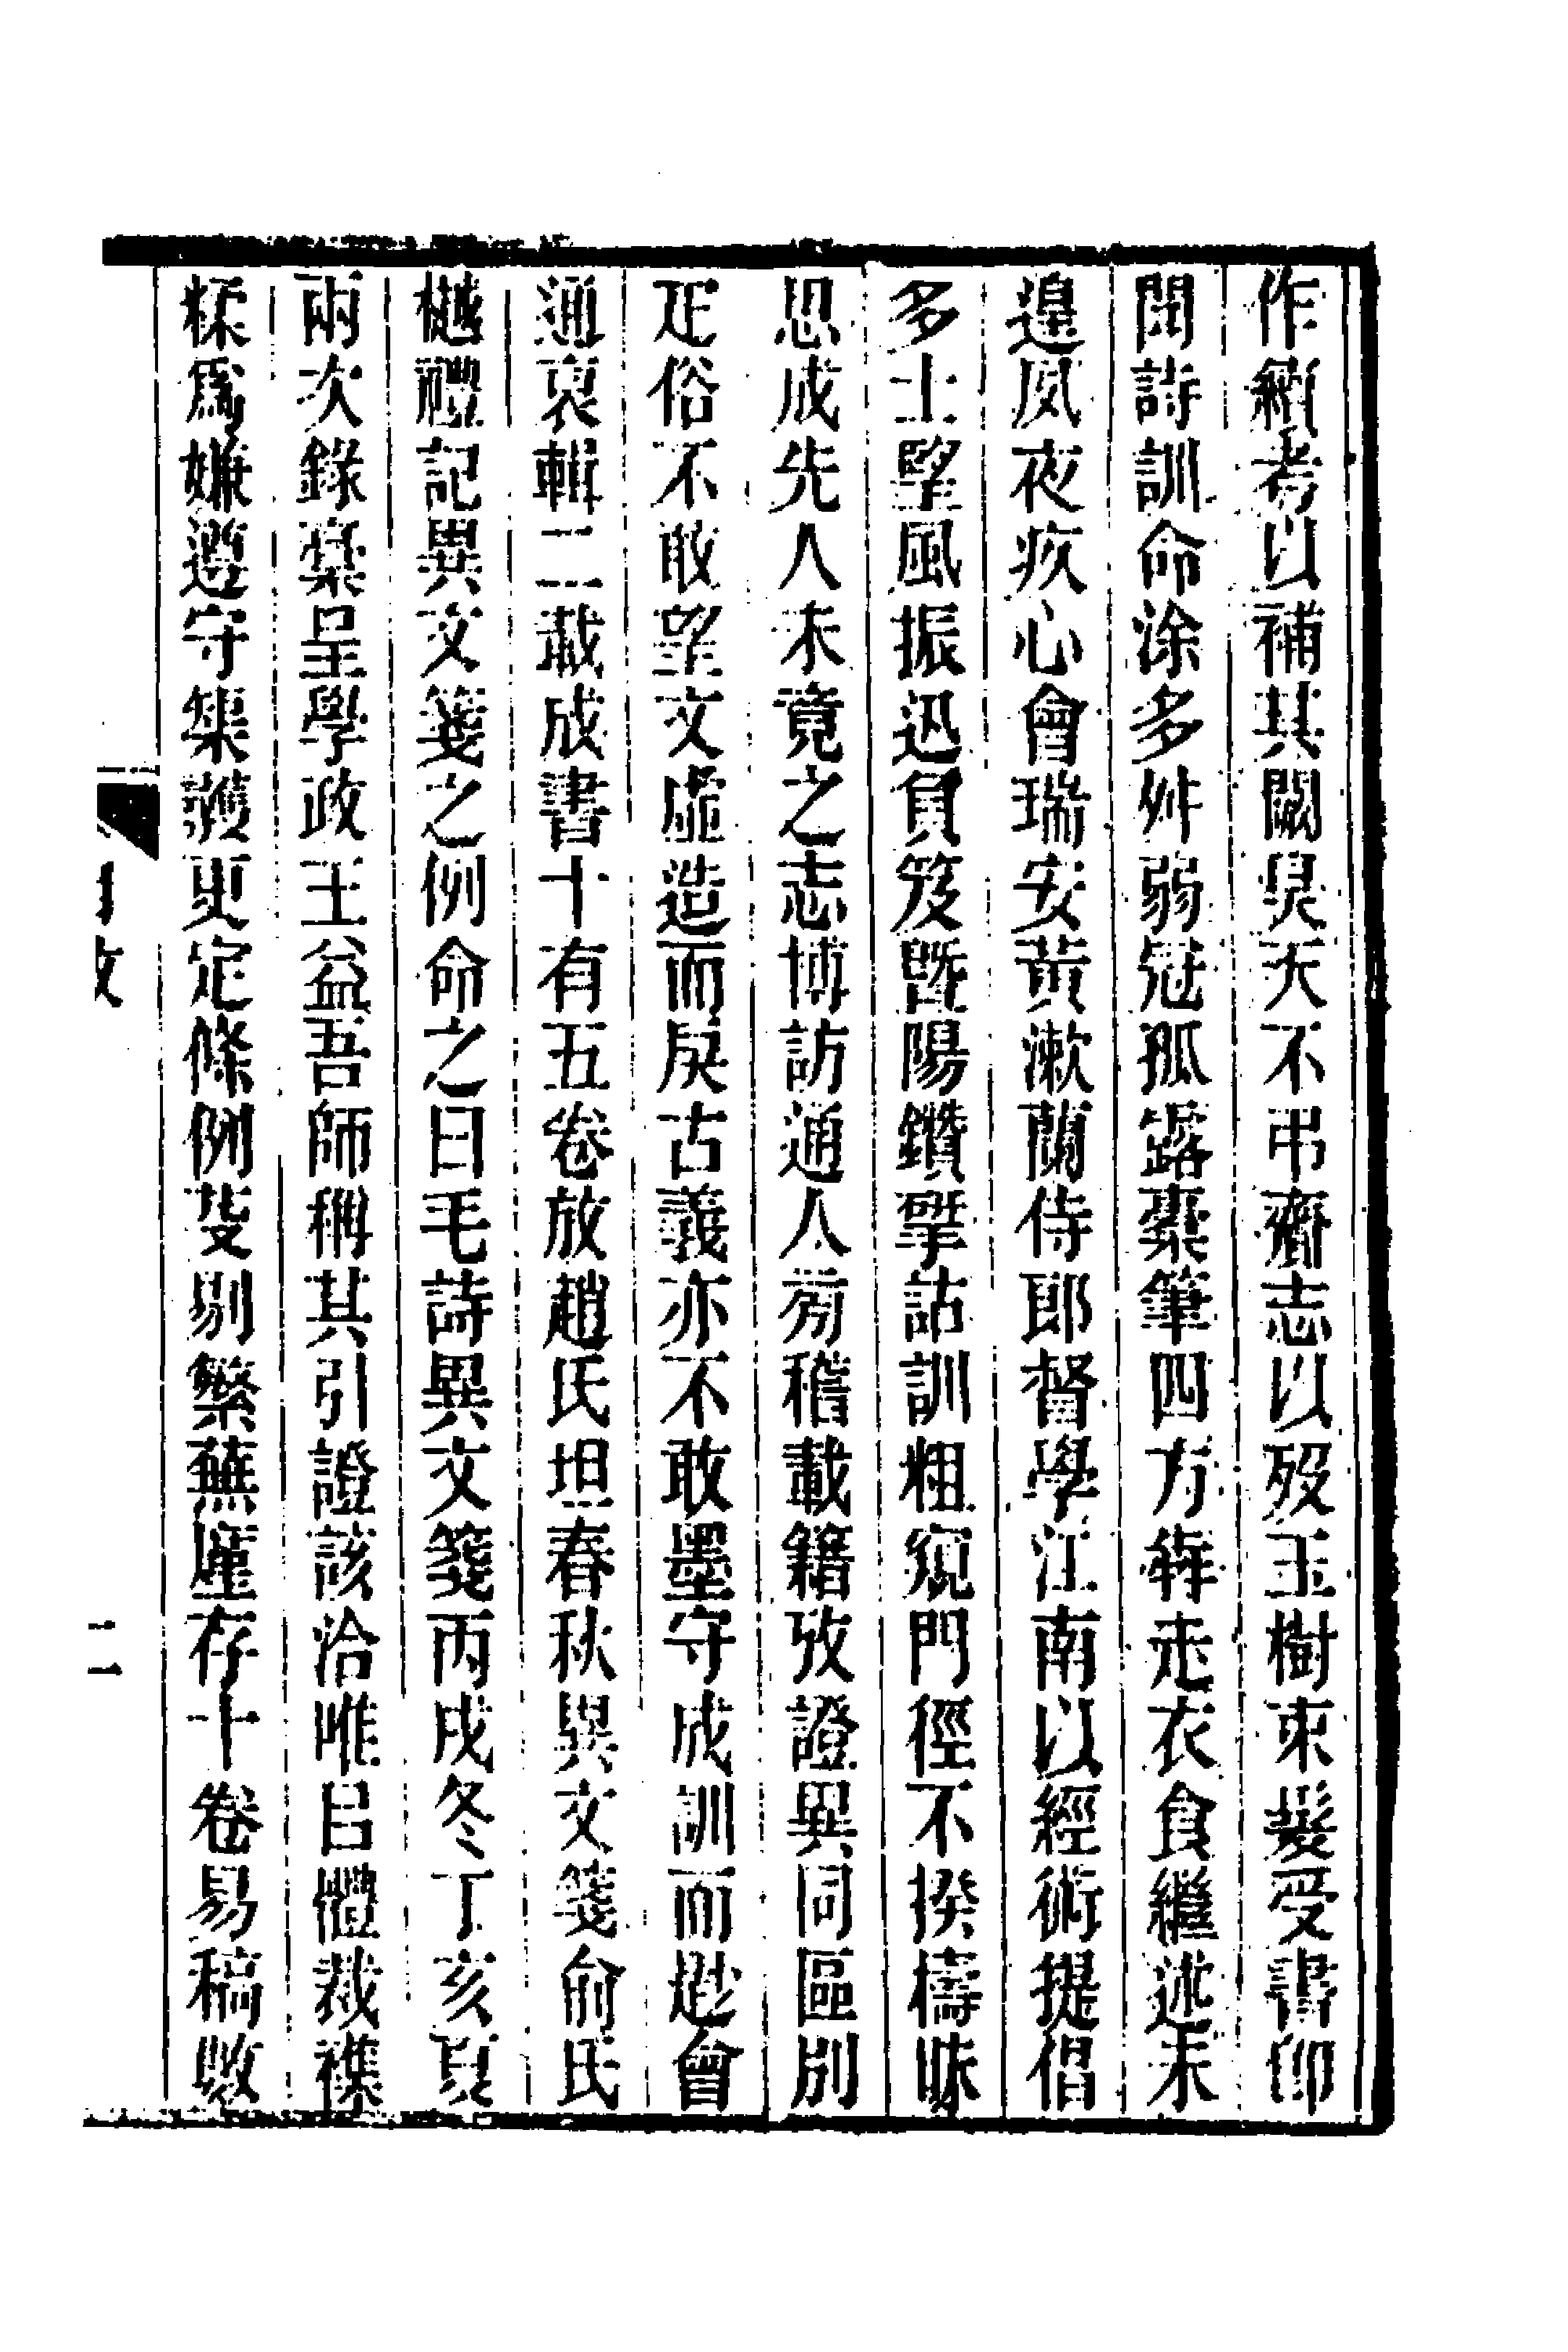 作續考以補其闕昊天不弔齎志以歿玉樹束髮受書仰
聞詩訓命涂多舛弱冠孤露橐筆四方犇走衣食繼述未
遑夙夜疚心會瑞安黃漱蘭侍郎督學江南以經術提倡
多士朢風振迅負笈曁陽鑽揅詁訓粗窺門徑不揆檮昧
思成先人未竟之志博訪通人旁稽載籍攷證異同區別
疋俗不敢望文虛造而戾古義亦不敢墨守成訓而尟會
通裒輯二載成書十有五卷放趙氏坦春秋異文箋俞氏
樾禮記異文箋之例命之曰毛詩異文箋丙戌冬丁亥夏
兩次錄稾呈學政王益吾師稱其引證該洽唯㠯體裁襍
糅爲嫌遵守榘蒦更定條例芟剔繁蕪廑存十卷易稿數
二